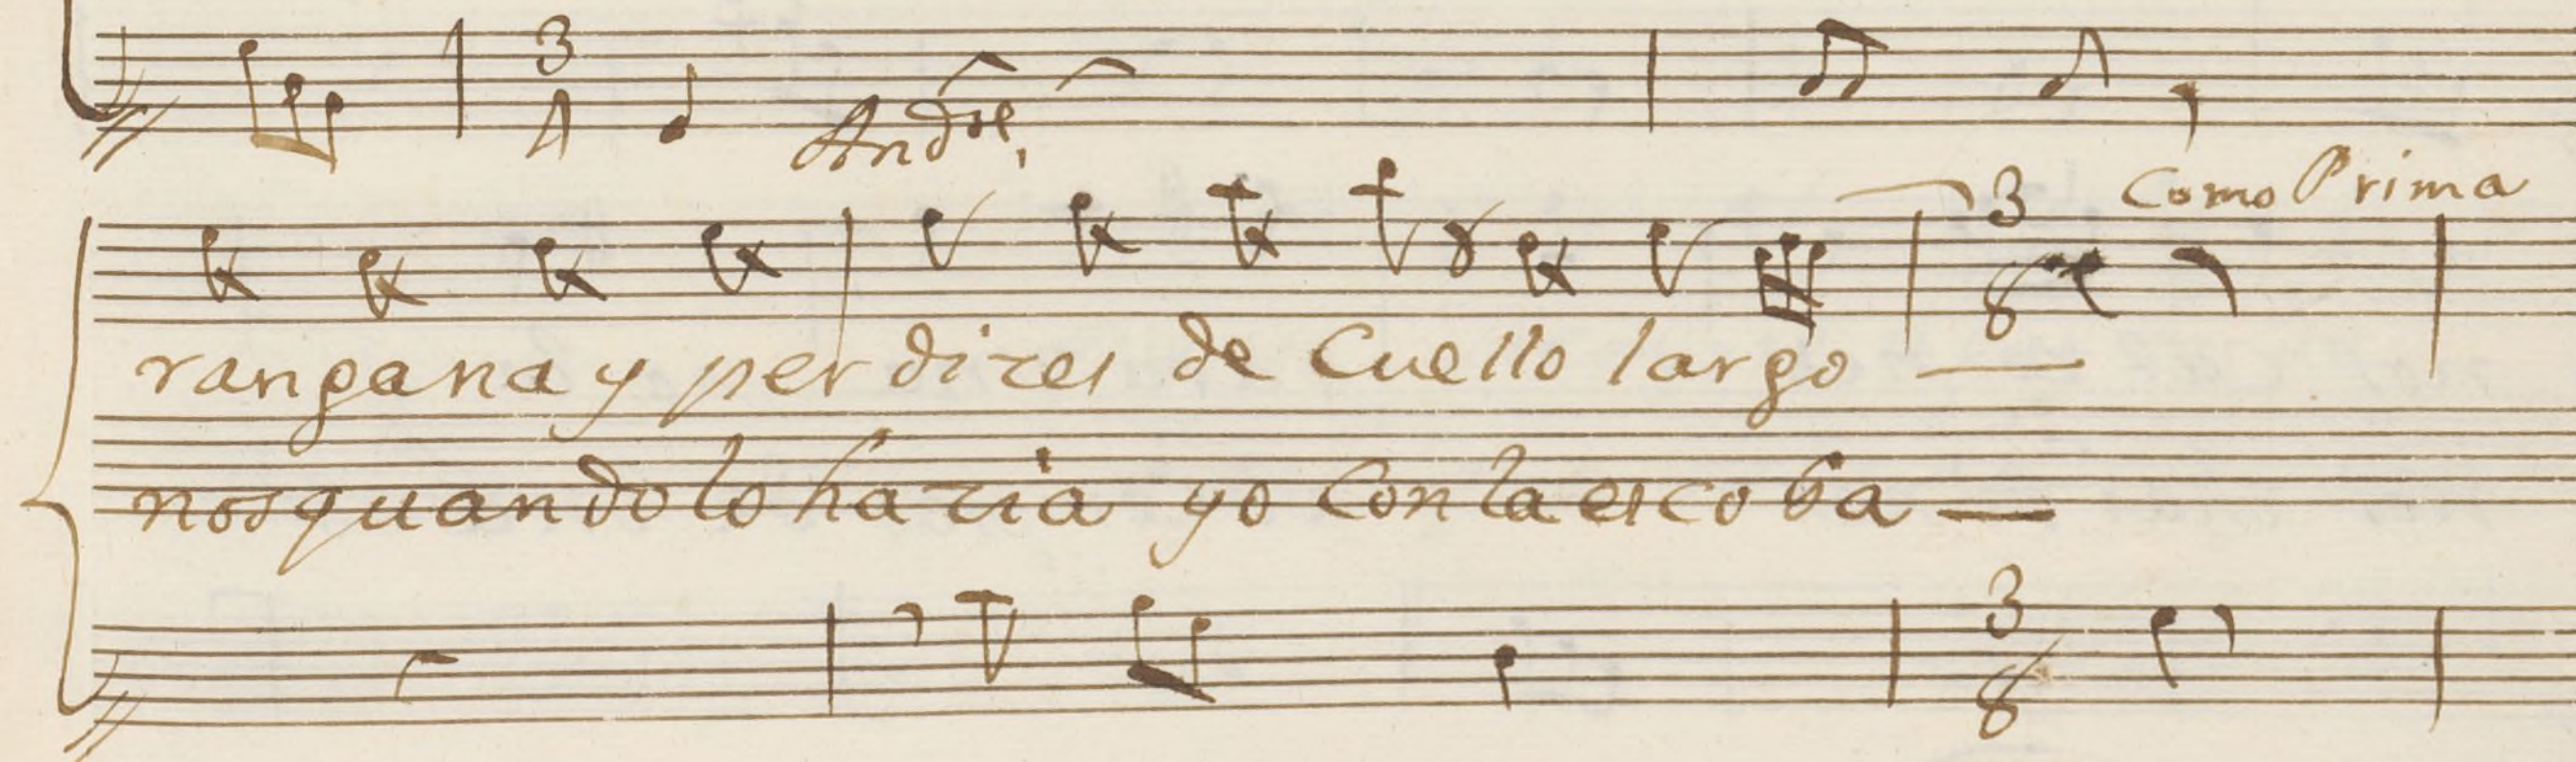 3
4 And.e,
3 Como Prima
8
rangana y perdizes de Cuello largo
nos quando lo hazia yo con la escoba
3
8